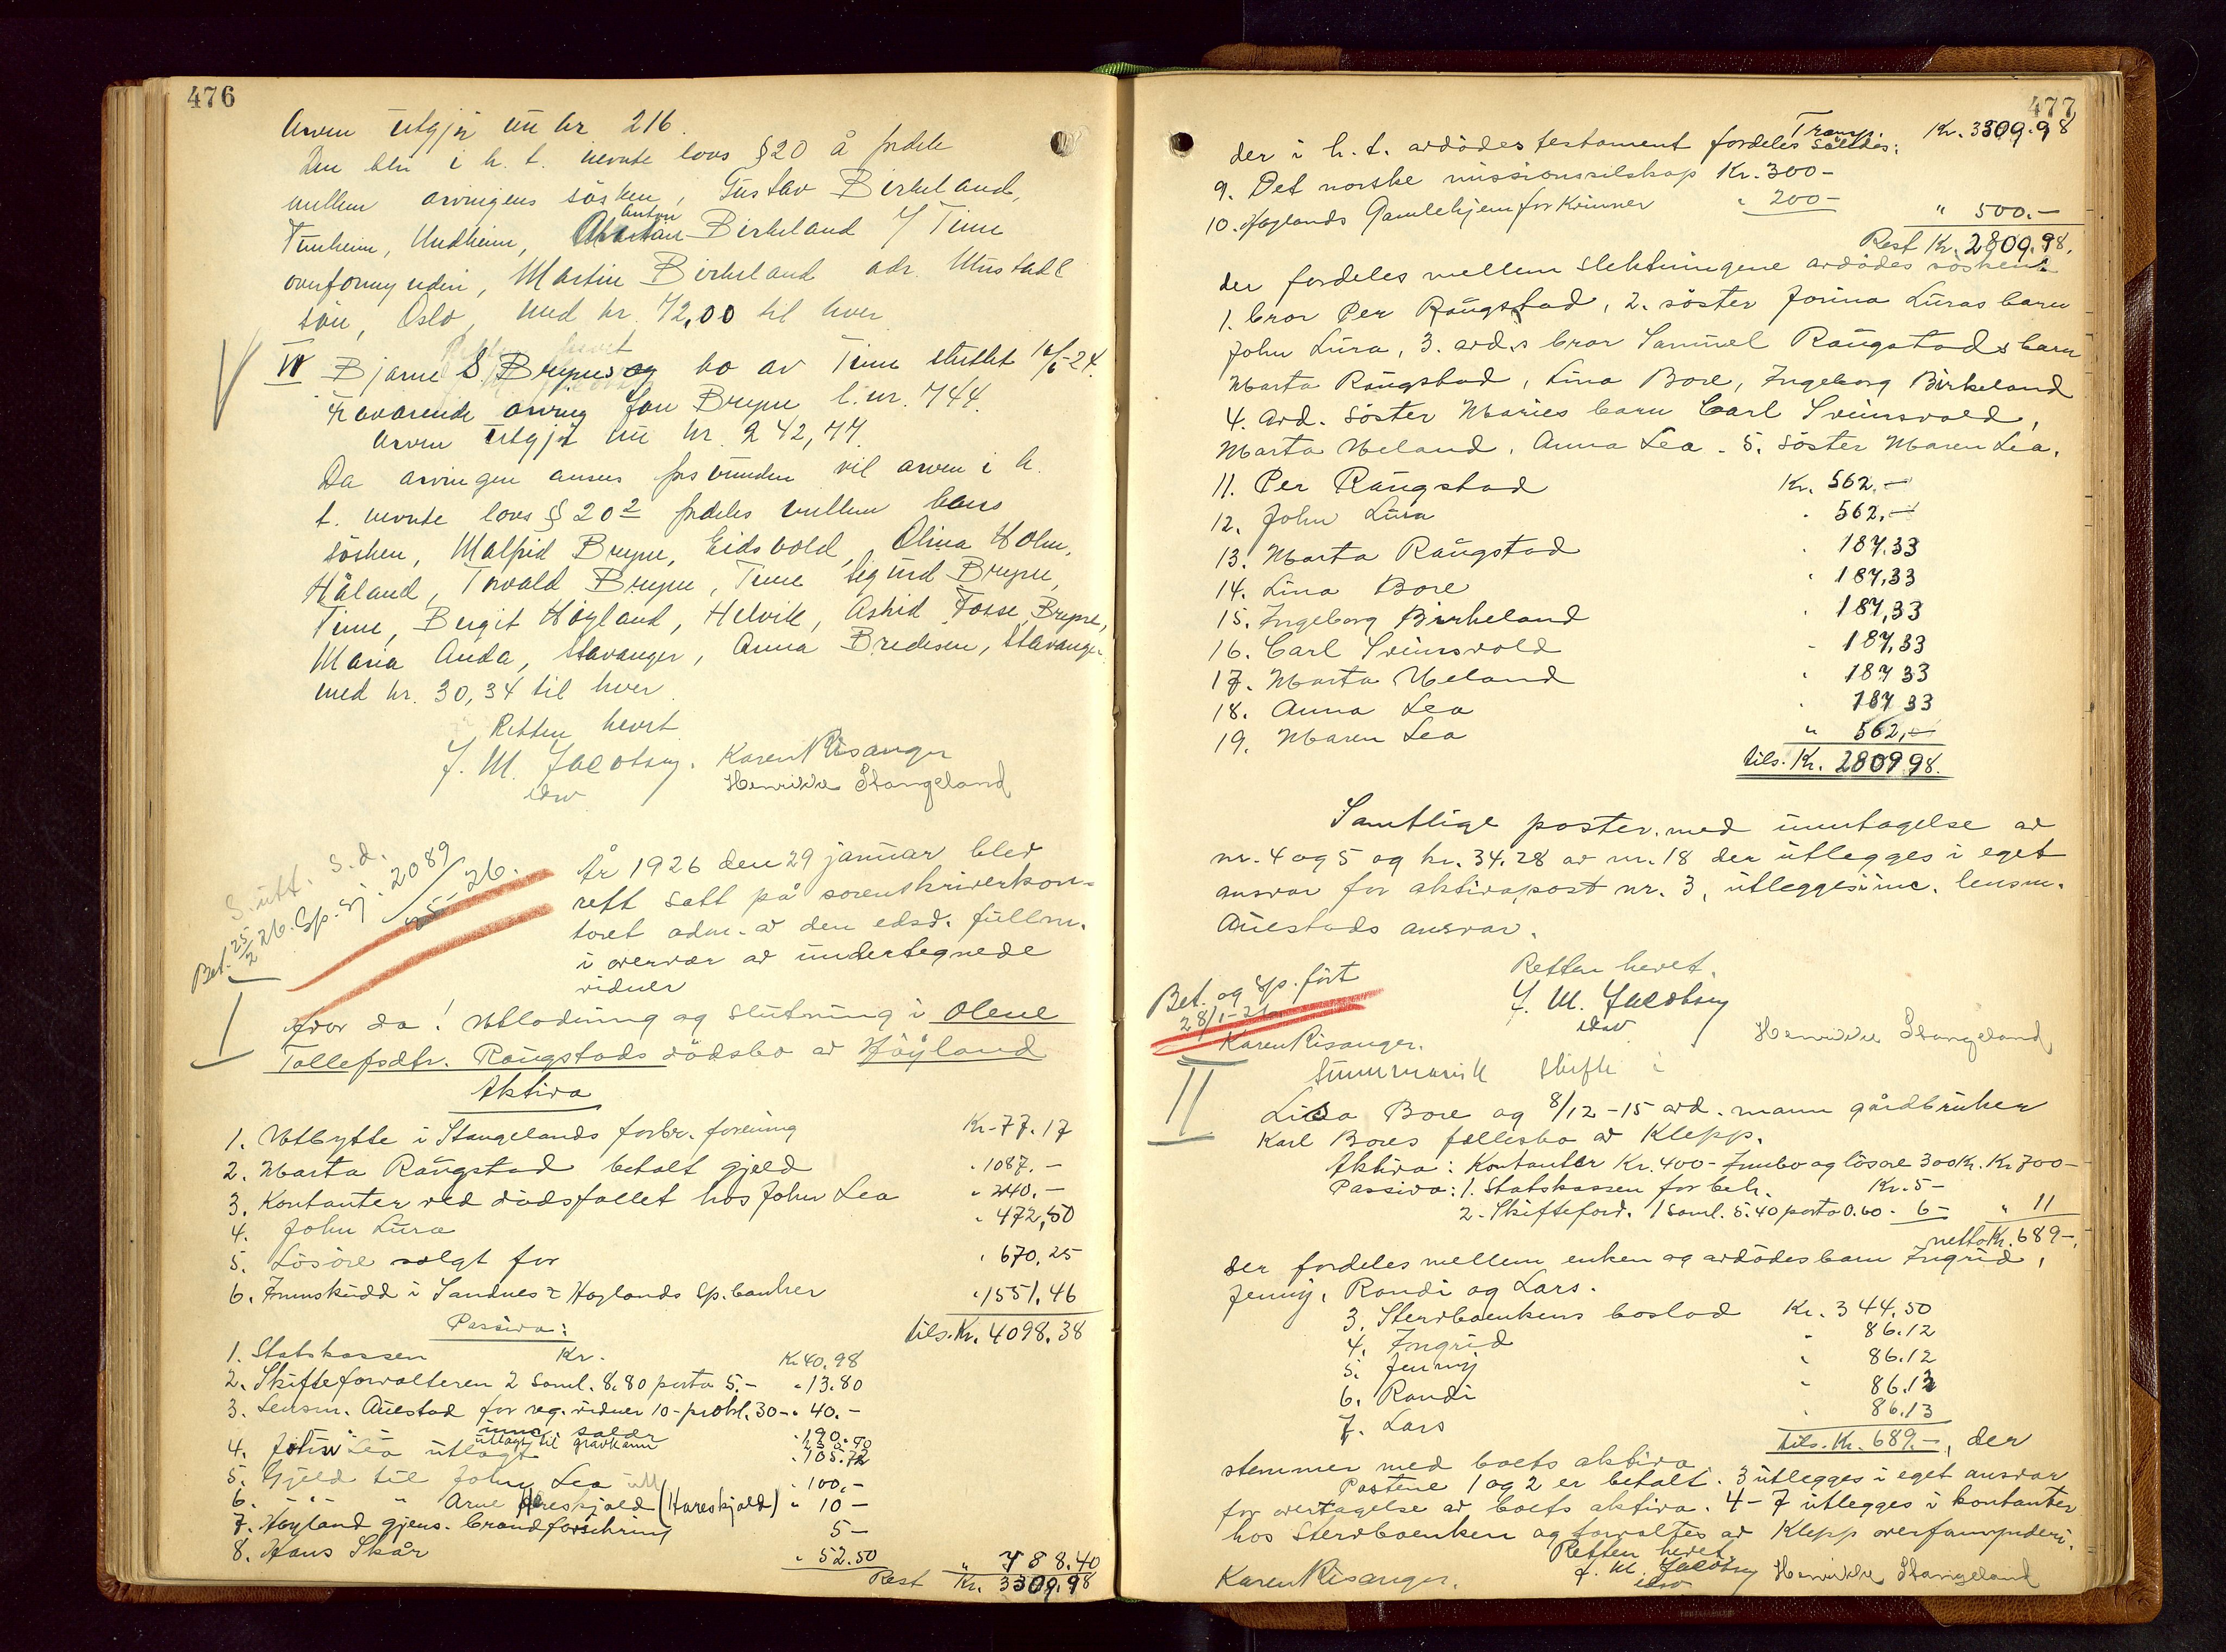 476
Arven utgjør nu kr 216.
Den blir i h. t. nevnte lovs §20 å fordele
mellem arvingens søsken, Gustav Birkeland,
Tunheim, Undheim, Anton Birkeland i/ Time
overformynderi, Martin Birkeland adr. Mustad &
søn, Oslo, med kr. 72,00 til hver
IV Bjarne S Brynes bo av Time sluttet 10/6-24.
Fraværende arving Jon Bryne l.nr. 744.
Arven utgjør nu kr. 242,77.
Da arvingen anses forsvunden vil arven i h.
t. nevnte lovs § 20² fordeles mellem hans
søsken, Malfrid Bryne, Eidsvold, Olina Holm,
Håland, Torvald Bryne, Time Sigurd Bryne,
Time, Bergit Høyland, Helvik, Astrid Fosse, Bryne,
Maria Anda, Stavanger, Anna Bredesen, Stavanger
med kr. 30,34 til hver.
Retten hevet
J. M. Jacobsen. Karen Risanger
edsv. Henrikke Stangeland
S. utt. s. d.
Bet. 25/2 26. Sp. sj. 2089
25 26.
År 1926 den 29 januar blev
rett satt på sorenskriverkon-
toret adm. av den edsv. fullm.
i overvær av undertegnede
vidner
I
Hvor da! Utlodning og slutning i Olene
Tollefsdtr. Raugstads dødsbo av Høyland
Aktiva
1. Utbytte i Stangelands forbr. forening Kr. 77.17
2. Marta Raugstad betalt gjeld " 1087.-
3. Kontanter ved dødsfallet hos John Lea " 240.-
4. John Lura " 472,50
5. Løsøre solgt for " 670,25
6. Innskudd i Sandnes & Høylands Sp.banker " 1551.46
tils. Kr. 4098.38
Passiva:
1. Statskassen Kr. Kr 40.98
2. Skifteforvalteren 2 saml. 8.80 porto 5.- " 13.80
3. Lensm. Auestad for reg. vidner 10- prokl. 30- " 40.-
4. John Lea utlagt " 105.72
5. Gjeld til John Lea " 100.-
6. " " " Arne Hareskjold (Hareskjold) " 10-
7. Høyland gjens. brandforsikring 5-
8. Hans Skår " 52.50 " 788.40
Rest Kr. 3309.98
477
Transp. Kr. 3309.98
der i h. t. avdødes testament fordeles således:
9. Det norske missionsselskap Kr. 300-
10. Høylands Gamlehjem for Kvinner " 200- " 500.-
Rest Kr. 2809.98.
der fordeles mellem slektningene avdødes søsken:
1. bror Per Raugstad, 2. søster Jorina Luras barn
John Lura, 3. avd.s bror Samuel Raugstads barn
Marta Raugstad, Lina Bore, Ingeborg Birkeland
4. avd. søster Maries barn Carl Sviunsvold,
Marta Meland, Anna Lea. 5. søster Maren Lea.
11. Per Raugstad Kr. 562.-
12. John Lura " 562,-
13. Marta Raugstad " 187.33
14. Lina Bore " 187,33
15. Ingeborg Birkeland " 187,33
16. Carl Sviunsvold " 187,33
17. Marta Meland " 187 33
18. Anna Lea " 187 33
19. Maren Lea " 562,-
tils. Kr. 2809 98.
Samtlige poster, med unntagelse av
nr. 4 og 5 og kr. 34.28 av nr. 18 der utlegges i eget
ansvar for aktivapost nr. 3, utlegges i inc. lensm.
Auestads ansvar.
Retten hevet.
Bet. og Sp. ført
28/1-26
J. M. Jacobsen
edsv
Karen Risanger. Henrikke Stangeland
II
Summarisk skifte i
Lisa Bore og 8/12-15 avd. mann gårdbruker
Karl Bores fællesbo av Klepp.
Aktiva: Kontanter Kr. 400- Innbo og løsøre 300 kr. Kr 700-
Passiva: 1. Statskassen for beh. Kr. 5-
2. Skifteforv. 1 saml. 5.40 porto 0.60 - 6- " 11
netto Kr. 689-.
der fordeles mellem enken og avdødes barn Ingrid,
Jenny, Randi og Lars.
3. Stervboenkens boslod Kr. 344.50
4. Ingrid " 86.12
5. Jenny " 86.12
6. Randi " 86.13
7. Lars " 86.13
tils. Kr. 689.-, der
stemmer med boets aktiva.
Postene 1 og 2 er betalt. 3 utlegges i eget ansvar
for overtagelse av boets aktiva. 4-7 utlegges i kontanter
hos Stervboenken og forvaltes av Klepp overformynderi.
Retten hevet
J. M. Jacobsen
edsv
Karen Risanger. Henrikke Stangeland